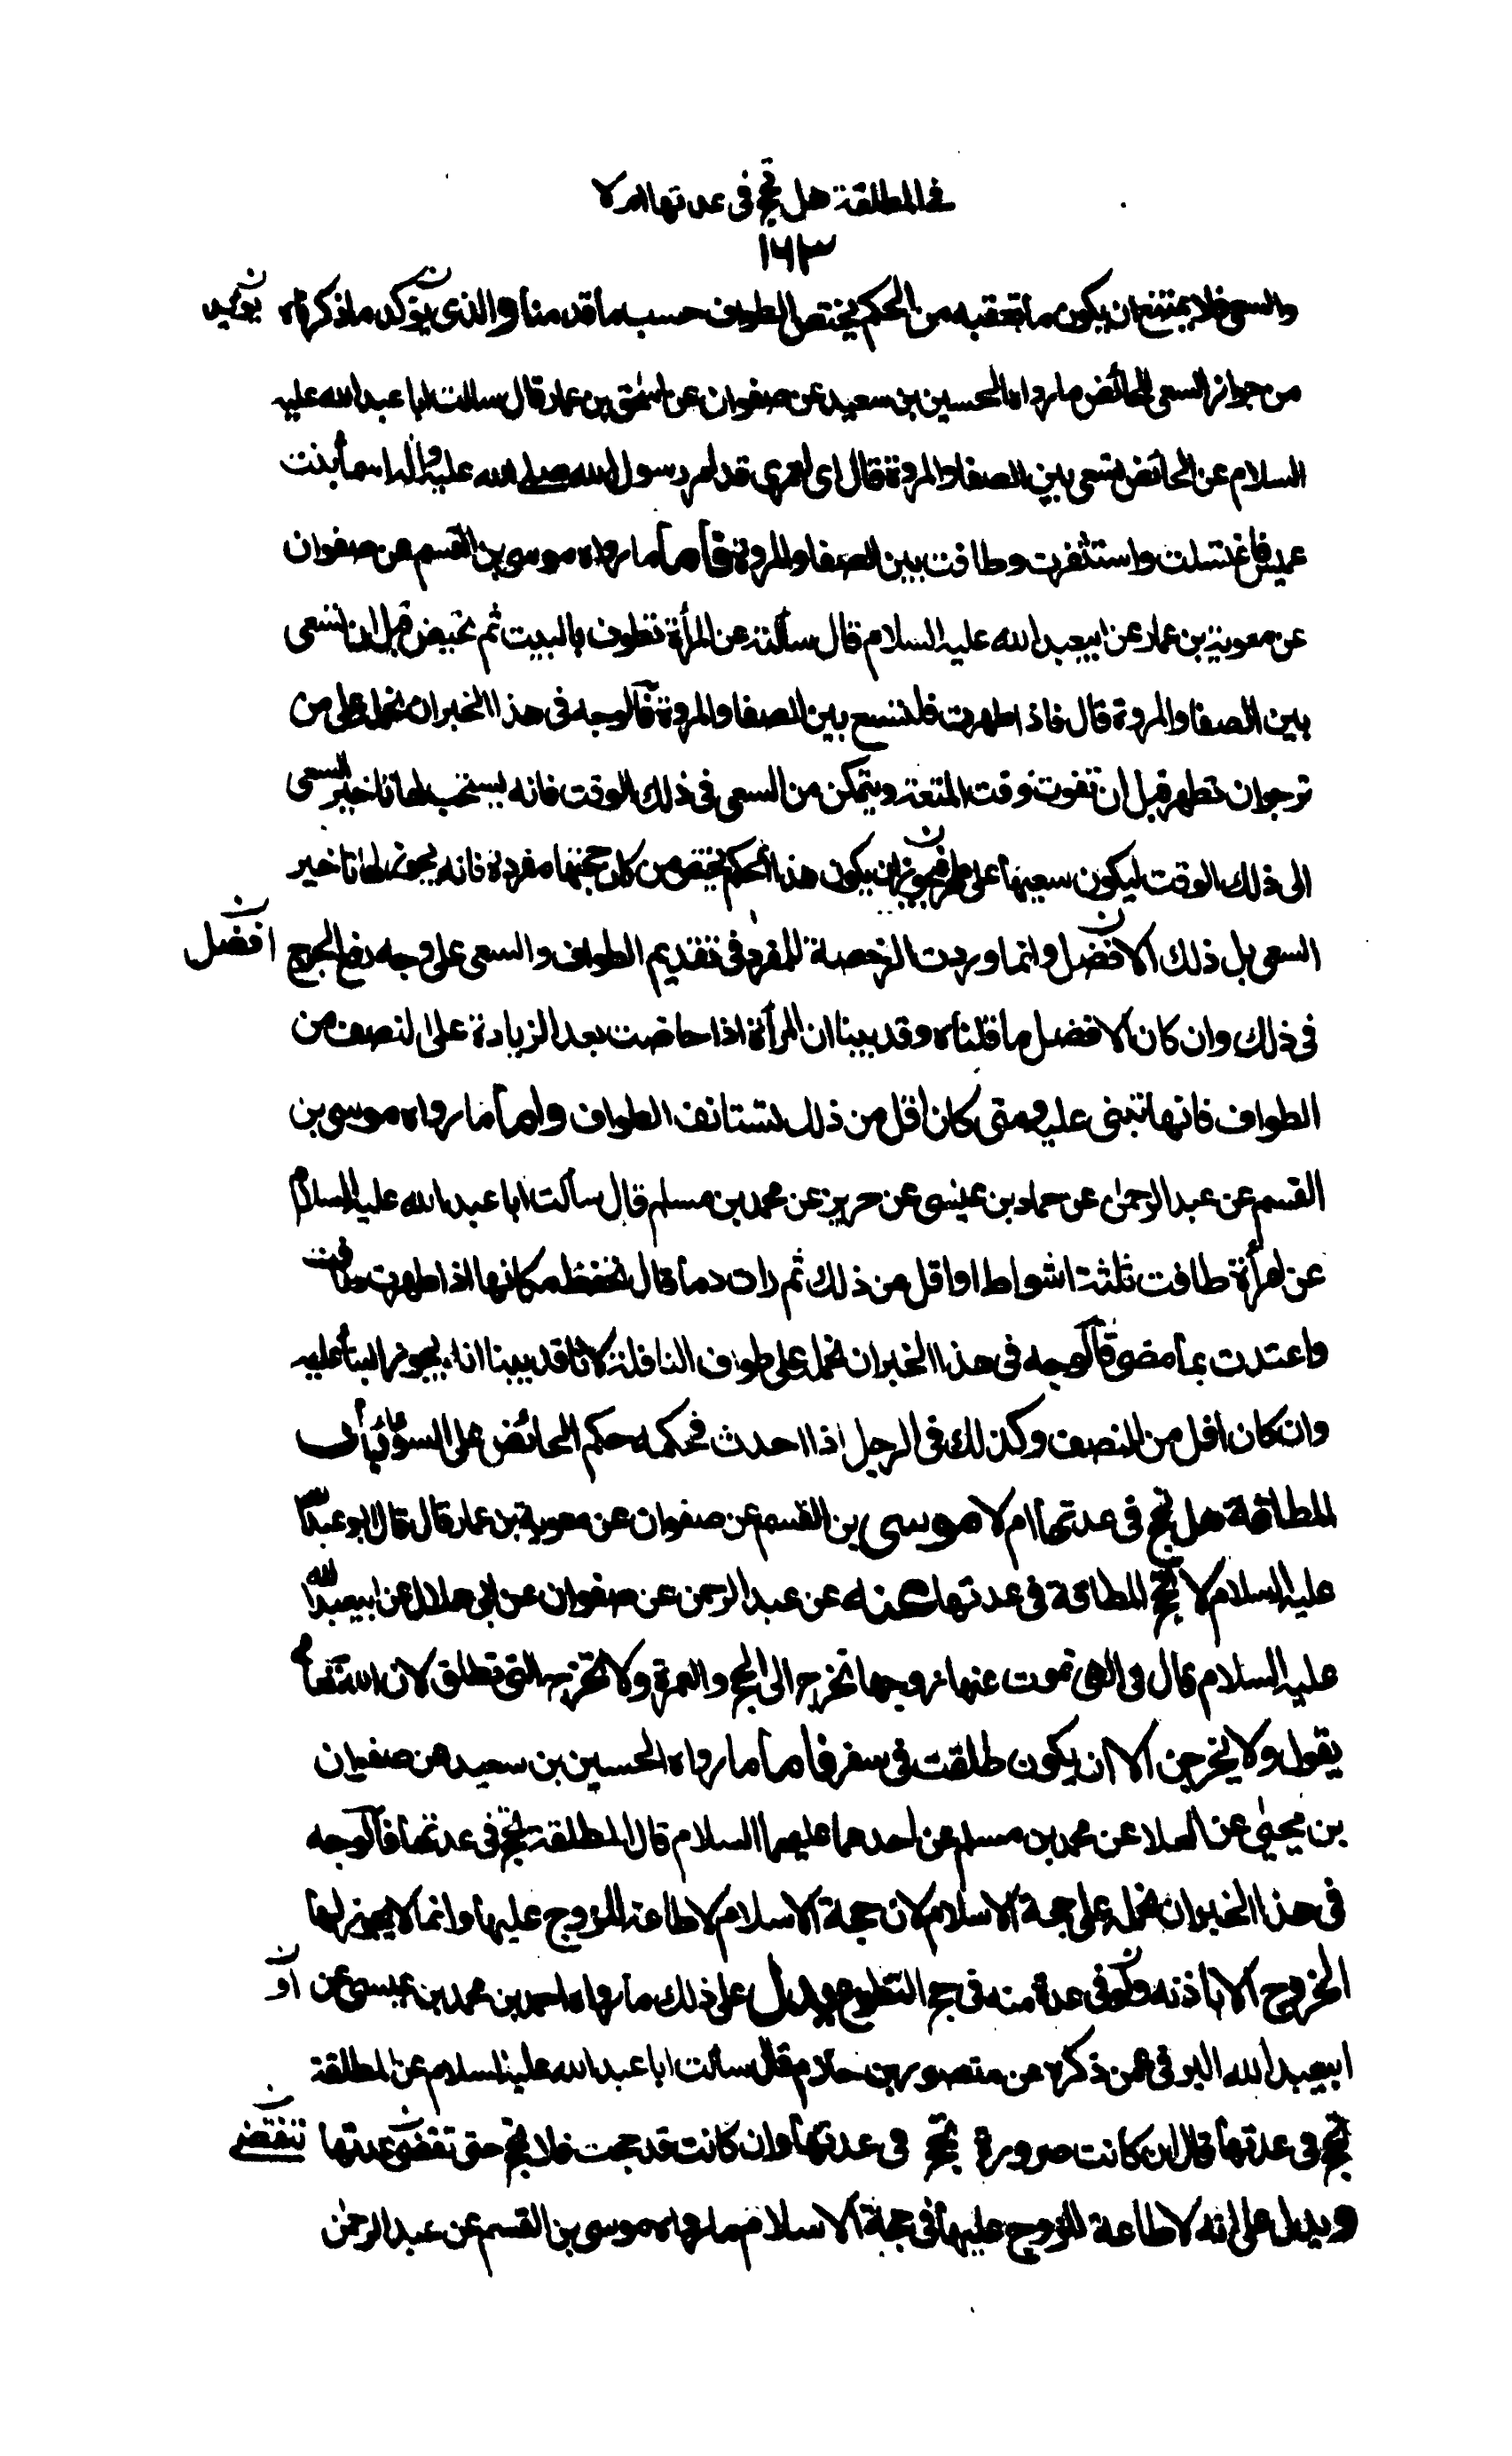 في المطلقة هل تحج في عدتها ام لا
١٦٣
والسعي فلا يمتنع ان يكون ما تعقبه من الحكم يختص الطواف حسب ما قدمناه والذي يؤكد ما ذكرناه يؤيد
من جواز السعي للحائض ما رواه الحسين بن سعيد عن صفوان عن اسحق بن عمار قال سالت ابا عبد الله عليه
السلام عن الحائض تسعى بين الصفا والمروة قال اي لعمري قد امر رسول الله صلى الله عليه واله اسمأ بنت
عميس فاغتسلت واستثفرت وطافت بين الصفا والمروة فاما ما رواه موسى بن القسم عن صفوان
عن معوية بن عمار عن ابيعبد الله عليه السلام قال سألته عن المرأة تطوف بالبيت ثم تحيض قبل ان تسعى
بين الصفا والمروة قال فاذا طهرت فلتسع بين الصفا والمروة فالوجه في هذا الخبر ان نحمله على من
ترجوان تطهر قبل ان تفوت وقت المتعة ويتمكن من السعي في ذلك الوقت فانه يستحب لها تاخير السعي
الى ذلك الوقت ليكون سعيها على طهر فيجوز ان يكون هذا الحكم يختص من كان حجتها مفردة فانه يجوز لها تاخير
السعي بل ذلك الافضل وانما وردت الرخصة للمفرد في تقديم الطواف والسعي على وجه رفع الحرج افضل
في ذلك وان كان الافضل ما قلناه وقد بينا ان المرأة اذا حاضت بعد الزيادة على النصف من
الطواف فانها تبنى عليه ومتى كان اقل من ذلك تستانف الطواف واما ما رواه موسى بن
القسم عن عبد الرحمن عن حماد بن عيسى عن حريز عن محمد بن مسلم قال سألت ابا عبد الله عليه السلام
عن امرأة طافت ثلثة اشواط او اقل من ذلك ثم رات دما قال تحفظ مكانها اذا طهرت طافت
واعتدت بما مضى فالوجه في هذا الخبر ان نحمله على طواف النافلة لانا قد بينا انه يجوز البنأ عليه
وان كان اقل من النصف وكذلك في الرجل اذا احدث فحكمه حكم الحائض على السوأ باب
المطلقة هل تحج في عدتها ام لا موسى بن القسم عن صفوان عن معوية بن عمار قال قال ابو عبد الله
عليه السلام لا تحج المطلقة في عدتها عنه عن عبد الرحمن عن صفوان عن ابي هلال عن ابيعبد الله
عليه السلام قال في التي تموت عنها زوجها تخرج الى الحج والعمرة ولا تخرج التي تطلق لان الله تعالى
يقول ولا يخرجن الا ان يكون طلقت في سفر فاما ما رواه الحسين بن سعيد عن صفوان
بن يحيى عن العلا عن محمد بن مسلم عن احدهما عليهما السلام قال المطلقة تحج في عدتها فالوجه
في هذا الخبر ان نحمله على حجة الاسلام لان حجة الاسلام لا طاعة للزوج عليها وانما لا يجوز لها
الخروج الا باذنه ولو في عدة منه في حج التطوع ويدل على ذلك ما رواه احمد بن محمد بن عيسى عن او
ابيعبد الله البرقي عمن ذكره عن منصور بن حازم قال سألت ابا عبد الله عليه السلام عن المطلقة
تحج في عدتها قال ان كانت صرورة تحج في عدتها وان كانت قد حجت فلا تحج حتى تقضى عدتها تنقضي
ويدل على انه لا طاعة للزوج عليها في حجة الاسلام ما رواه موسى بن القسم عن عبد الرحمن